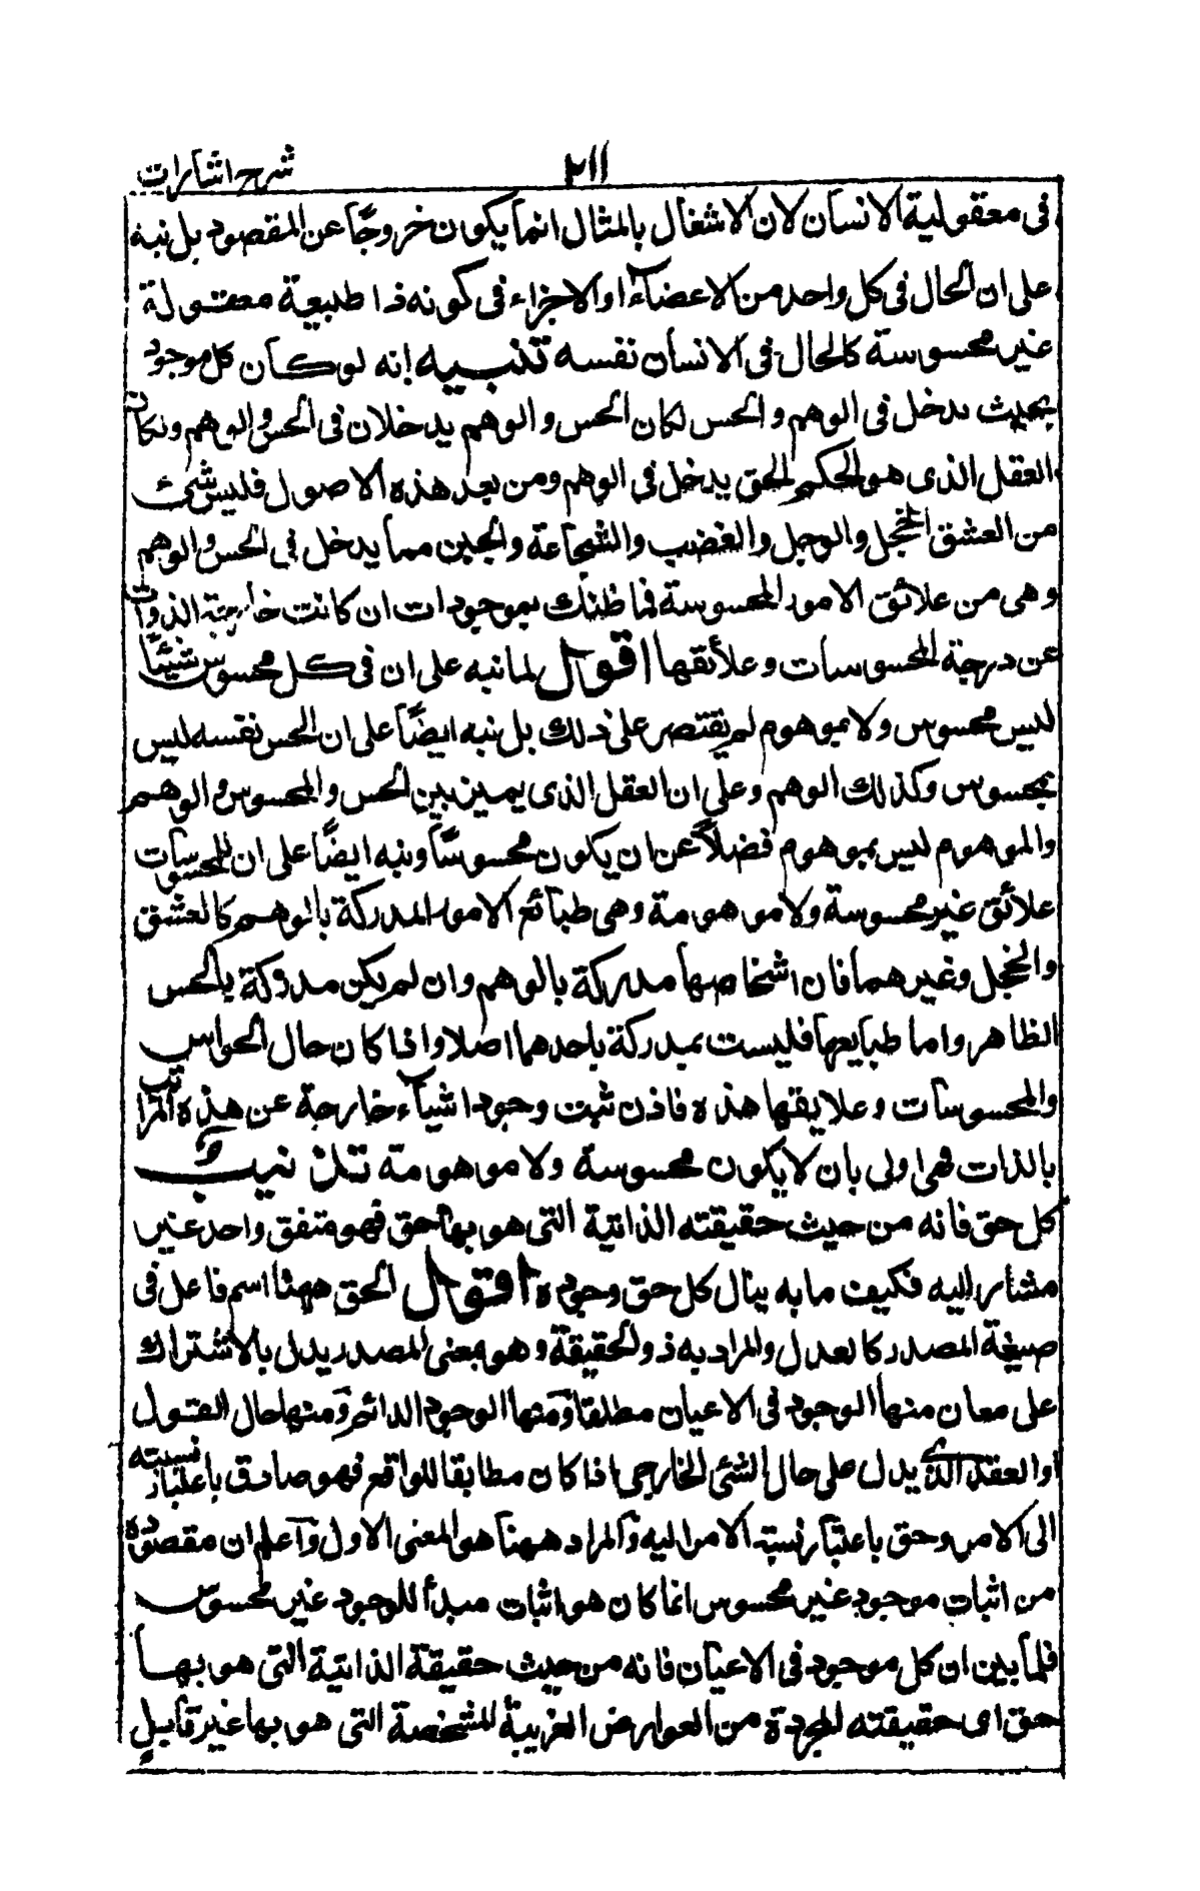 ٢١١
شرح اشارات
فى معقولية الانسان لان الاشغال بالمثال انما يكون خروجًا عن المقصود بل نبه
على ان الحال فى كل واحد من الاعضاء او الاجزاء فى كونه ذا طبيعة معقولة
غير محسوسة كالحال فى الانسان نفسه تنبيه إنه لو كان كل موجود
بحيث يدخل فى الوهم و الحس لكان الحس و الوهم يدخلان فى الحس و الوهم ولكان
العقل الذى هو الحكم الحق يدخل فى الوهم ومن بعد هذه الاصول فليس شئ
من العشق الخجل والوجل والغضب والشجاعة والجبن مما يدخل فى الحس والوهم
وهى من علائق الامور المحسوسة فما ظنك بموجودات ان كانت خارجية الذوات
عن درجة المحسوسات وعلائقها اقول لما نبه على ان فى كل محسوس شيئًا
ليس محسوس ولا بموهوم لم يقتصر على ذلك بل نبه ايضًا على ان الحس نفسه ليس
بمحسوس وكذلك الوهم وعلى ان العقل الذى يميز بين الحس والمحسوس والوهم
والموهوم ليس بموهوم فضلاً عن ان يكون محسوسًا ونبه ايضًا على ان للمحسوسات
علائق غير محسوسة ولا موهومة وهى طبائع الامور المدركة بالوهم كالعشق
والخجل وغيرهما فان اشخاصها مدركة بالوهم وان لم يكن مدركة بالحس
الظاهر واما طبايعها فليست بمدركة باحدهما اصلا واذا كان حال الحواس
والمحسوسات وعلايقها هذه فاذن ثبت وجود اشياء خارجة عن هذه المراتب
بالذات فهى اولى بان لا يكون محسوسة ولا موهومة تذنيب
كل حق فانه من حيث حقيقته الذاتية التى هو بها حق فهو متفق واحد غير
مشار اليه فكيف ما به ينال كل حق وجوده اقول الحق ههنا اسم فاعل فى
صيغة المصدر كالعدل والمراد به ذو الحقيقة وهو بمعنى المصدر يدل بالاشتراك
على معان منها الوجود فى الاعيان مطلقا ومنها الوجود الدائم ومنها حال القول
او العقد الذى يدل على حال الشئ الخارجى اذا كان مطابقا للواقع فهو صادق باعتبار نسبته
الى الامر وحق باعتبار نسبة الامر اليه والمراد ههنا هو المعنى الاول واعلم ان مقصوده
من اثبات موجود غير محسوس انما كان هو اثبات مبدأ للوجود غير محسوس
فلما بين ان كل موجود فى الاعيان فانه من حيث حقيقة الذاتية التى هو بها
حق اى حقيقته المجردة من العوارض الغريبة المشخصة التى هو بها غير قابل